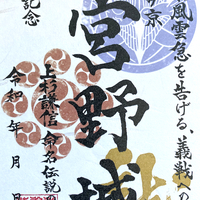 風雲急を告げる、義戦への
京
宮野城
上杉謙信 命名伝説の
記念
令和 年 月 日